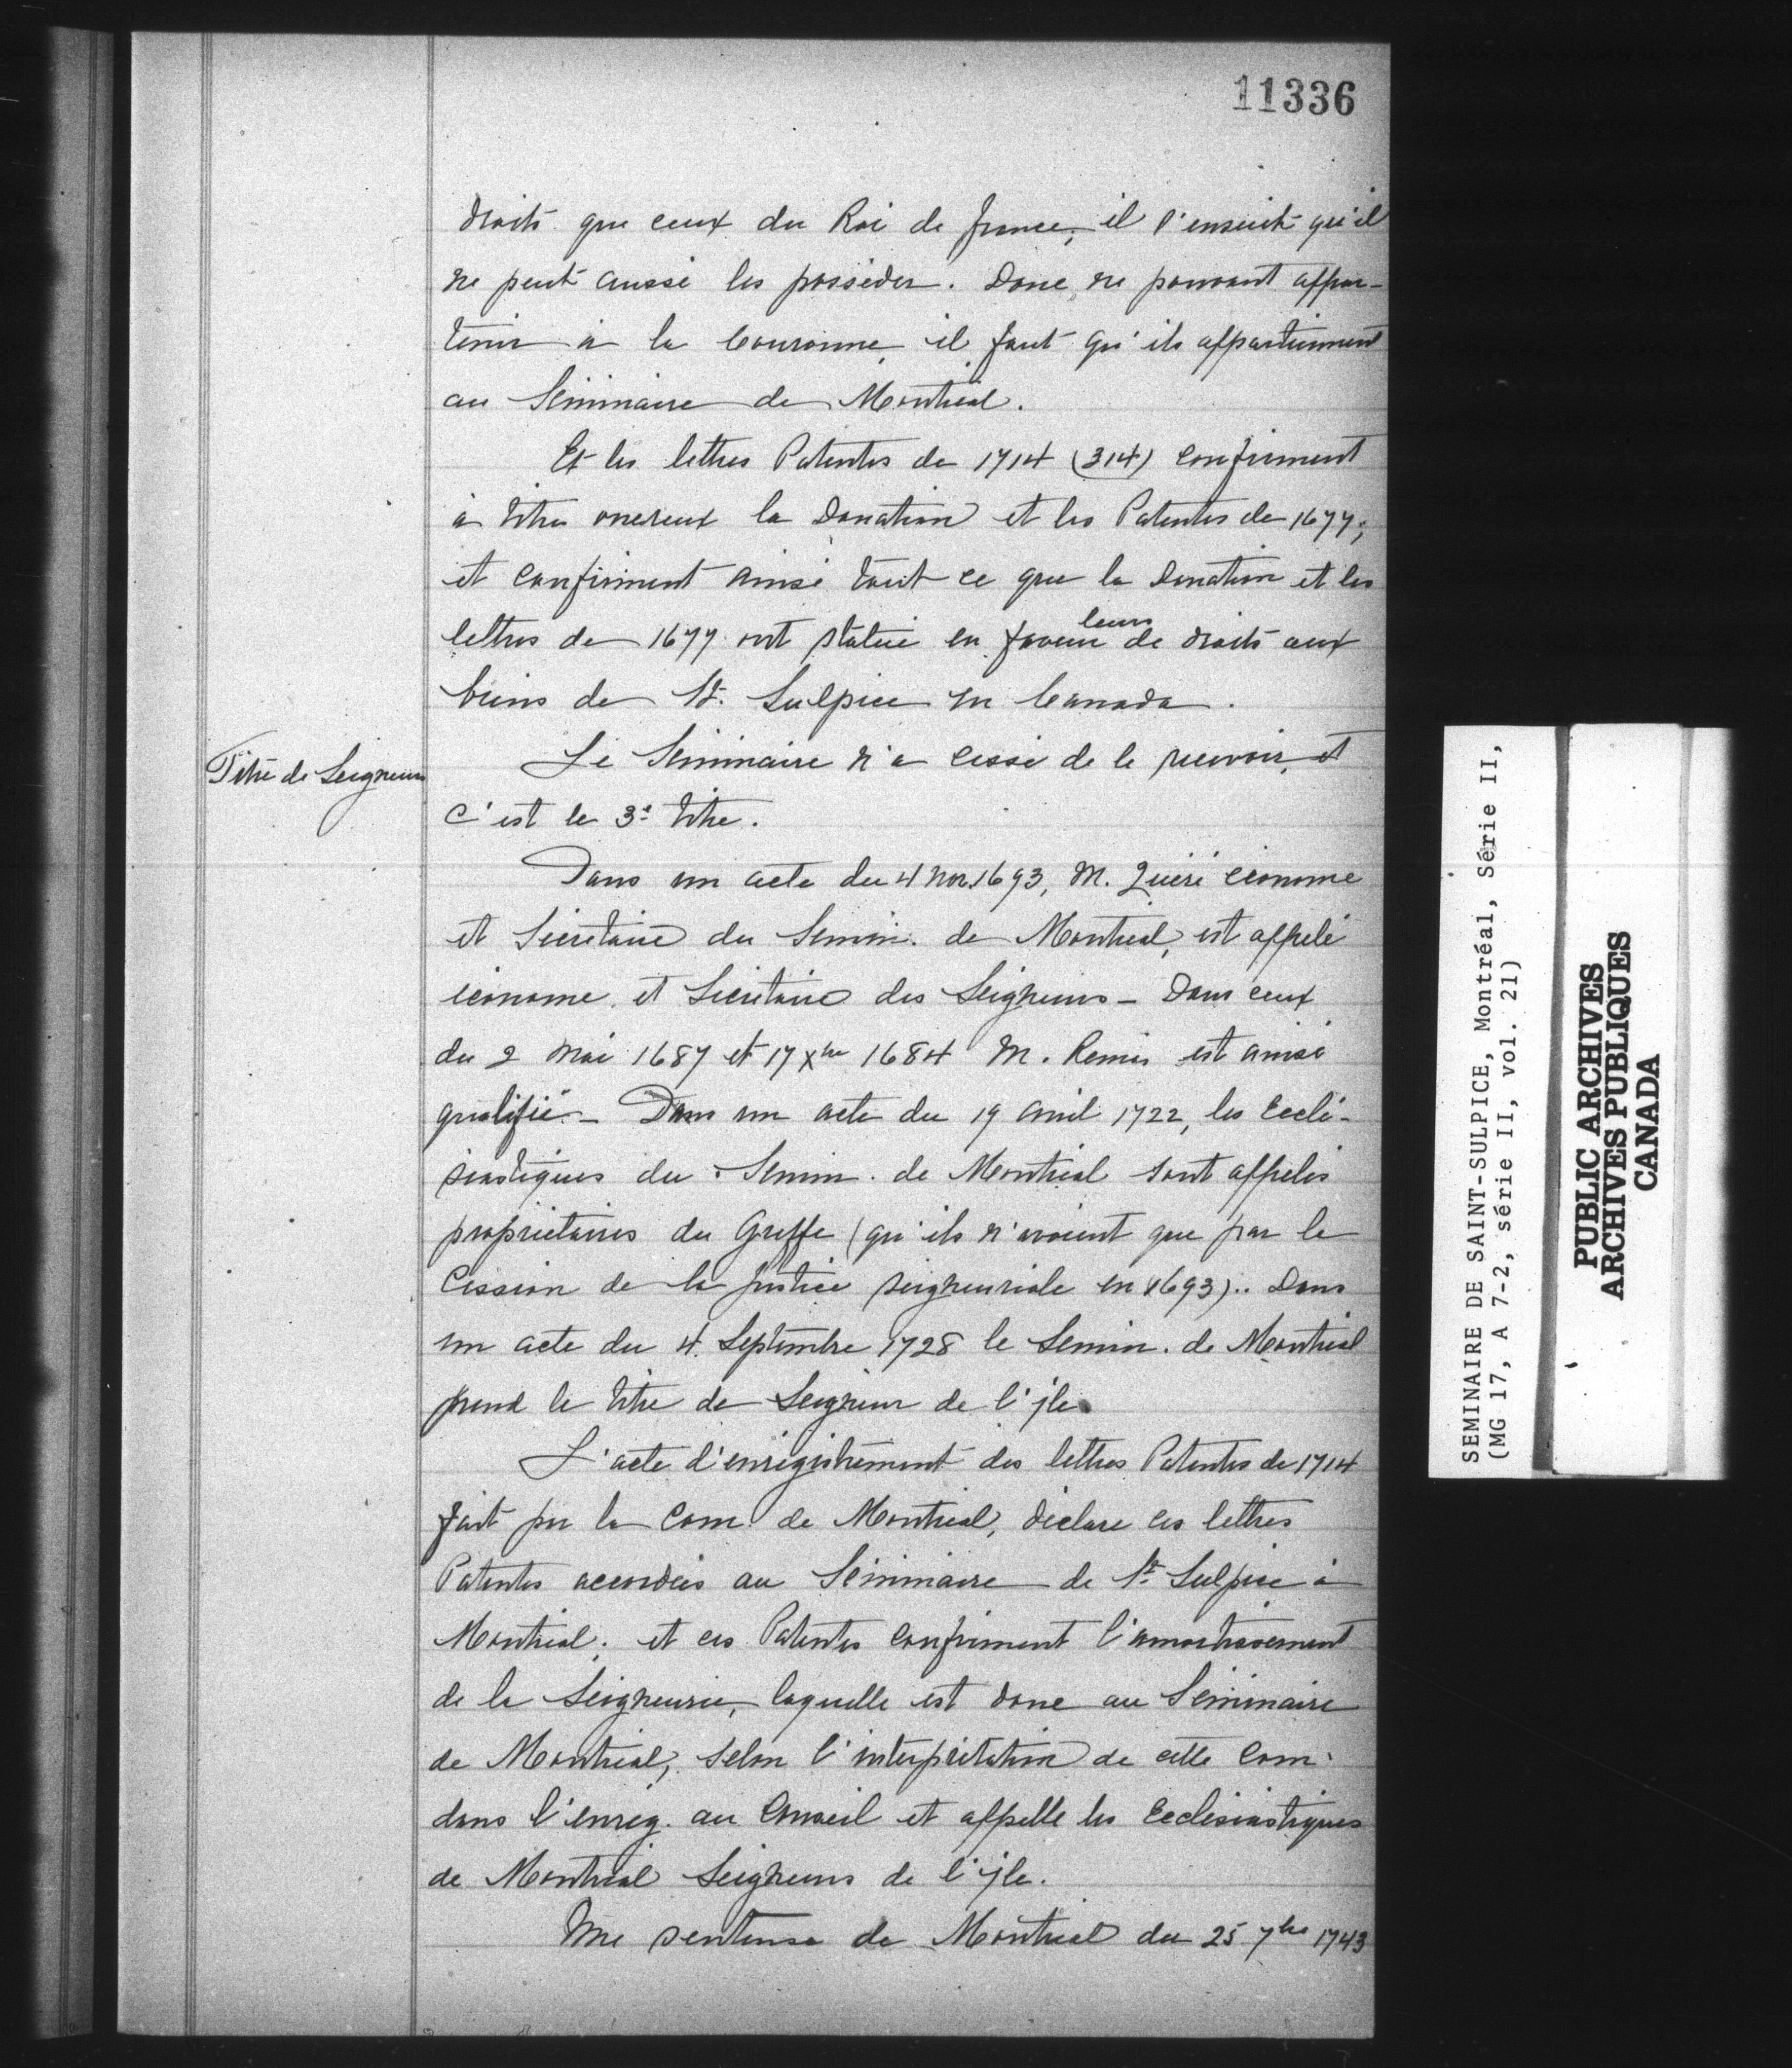 11336
droits que ceux du Roi de france, il s'ensuit qu'il
ne peut aussi les posséder. Donc ne pouvant appar-
tenir à la Couronne il faut qu'ils appartiennent
au Séminaire de Montréal.
Et les lettres Patentes de 1714 (314) confirment
à titre onereux la Donation et les Patentes de 1677;
et confirment ainsi tout ce que la Donation et les
lettres de 1677 ont statué en faveur de leurs droits aux
biens de St. Sulpice en Canada.
Titre de Seigneurs
Le Séminaire n'a cessé de le recevoir, et
c'est le 3e titre.
Dans un acte du 4 nov. 1693, M. Quéré économe
et Sécrétaire du Semin. de Montreal, est appelé
économe et Sécrétaire des Seigneurs - Dans ceux
du 2 Mai 1687 et 17 Xbre 1684 M. Remis est ainsi
qualifié - Dans un acte du 19 avril 1722, les Ecclé-
siastiques du Semin. de Montréal sont appelés
propriétaires du Greffe (qu'ils n'avaient que par la
Cession de la justice seigneuriale en 1693).. Dans
un acte du 4 Septembre 1728 le Semin. de Montréal
prend le titre de Seigneur de l'jle.
L'acte d'enrégistrement des lettres Patentes de 1714
fait par la Com. de Montréal, déclare ces lettres
Patentes accordées au Séminaire de St. Sulpice à
Montréal; et ces Patentes confirment l'amortissement
de la Seigneurie, laquelle est donc au Séminaire
de Montréal, selon l'interprétation de cette Com.
dans l'enreg. au Conseil et appelle les Ecclésiastiques
de Montréal Seigneurs de l'jle.
Une sentense de Montréal du 25 7bre 1743
SEMINAIRE DE SAINT-SULPICE, Montréal, Série II,
(MG 17, A 7-2, série II, vol. 21)
PUBLIC ARCHIVES
ARCHIVES PUBLIQUES
CANADA